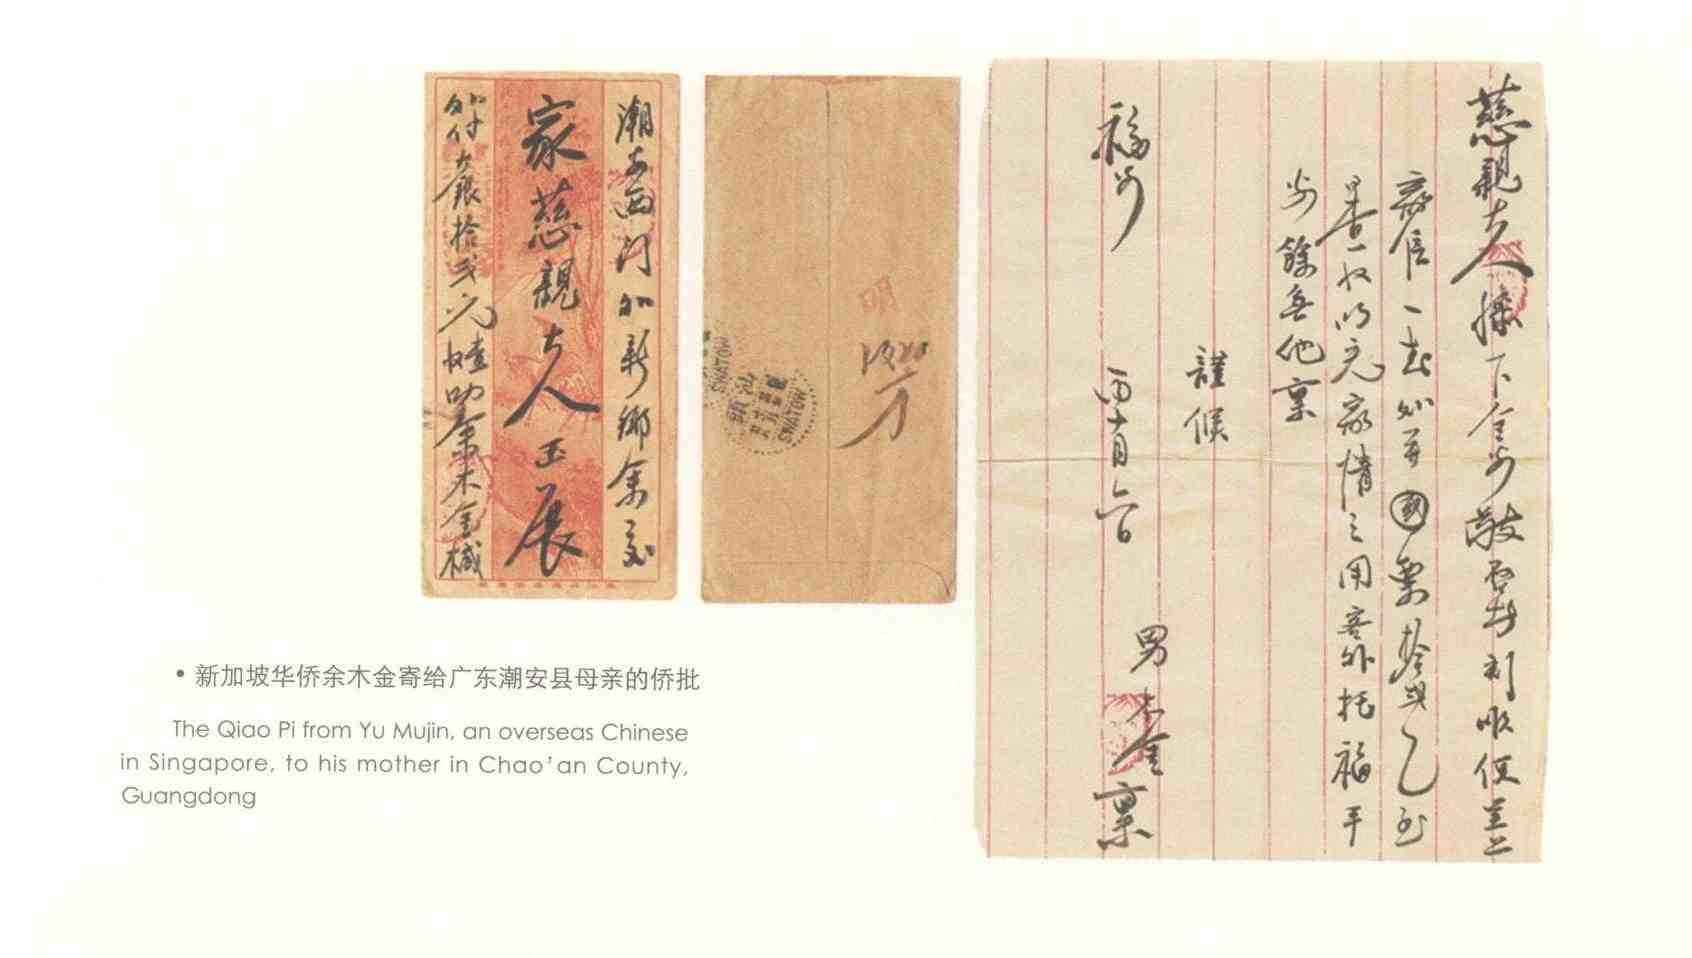 潮安西门外新鄉余交
家慈親大人玉展
外付大銀拾弍元 叻余木金械
明
汕頭
SWATOW
SWATOW
慈親大人膝下金安敬啓者刻順便呈上
家信一封外并國幣拾弍元到
查收以充家情之用客外托福平
安餘無他稟
謹候
福安
十月六日
男木金稟
• 新加坡华侨余木金寄给广东潮安县母亲的侨批
The Qiao Pi from Yu Mujin, an overseas Chinese
in Singapore, to his mother in Chao'an County,
Guangdong